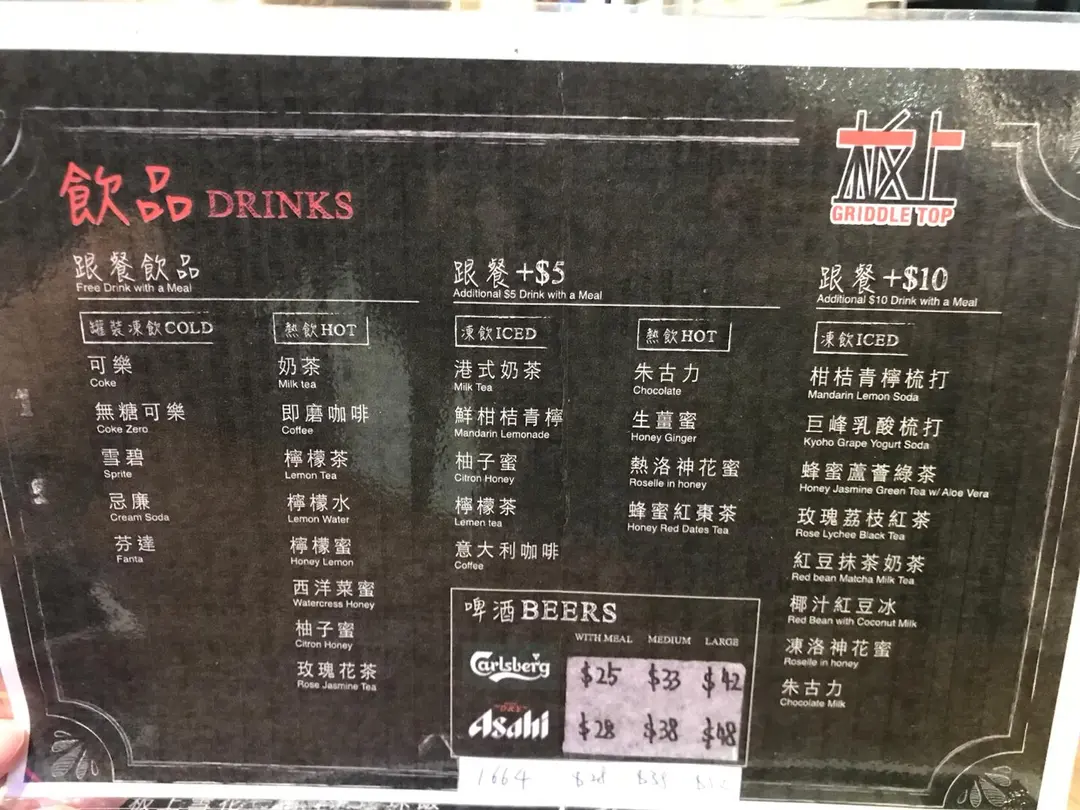 極上
GRIDDLE TOP
飲品 DRINKS
跟餐飲品
Free Drink with a Meal
罐裝凍飲COLD
可樂
Coke
無糖可樂
Coke Zero
雪碧
Sprite
忌廉
Cream Soda
芬達
Fanta
熱飲HOT
奶茶
Milk tea
即磨咖啡
Coffee
檸檬茶
Lemon Tea
檸檬水
Lemon Water
檸檬蜜
Honey Lemon
西洋菜蜜
Watercress Honey
柚子蜜
Citron Honey
玫瑰花茶
Rose Jasmine Tea
跟餐+$5
Additional $5 Drink with a Meal
凍飲ICED
港式奶茶
Milk Tea
鮮柑桔青檸
Mandarin Lemonade
柚子蜜
Citron Honey
檸檬茶
Lemen tea
意大利咖啡
Coffee
熱飲HOT
朱古力
Chocolate
生薑蜜
Honey Ginger
熱洛神花蜜
Roselle in honey
蜂蜜紅棗茶
Honey Red Dates Tea
跟餐+$10
Additional $10 Drink with a Meal
凍飲ICED
柑桔青檸梳打
Mandarin Lemon Soda
巨峰乳酸梳打
Kyoho Grape Yogurt Soda
蜂蜜蘆薈綠茶
Honey Jasmine Green Tea w/ Aloe Vera
玫瑰荔枝紅茶
Rose Lychee Black Tea
紅豆抹茶奶茶
Red bean Matcha Milk Tea
椰汁紅豆冰
Red Bean with Coconut Milk
凍洛神花蜜
Roselle in honey
朱古力
Chocolate Milk
啤酒BEERS
WITH MEAL MEDIUM LARGE
Carlsberg $25 $33 $42
Asahi $28 $38 $48
1664 $28 $38